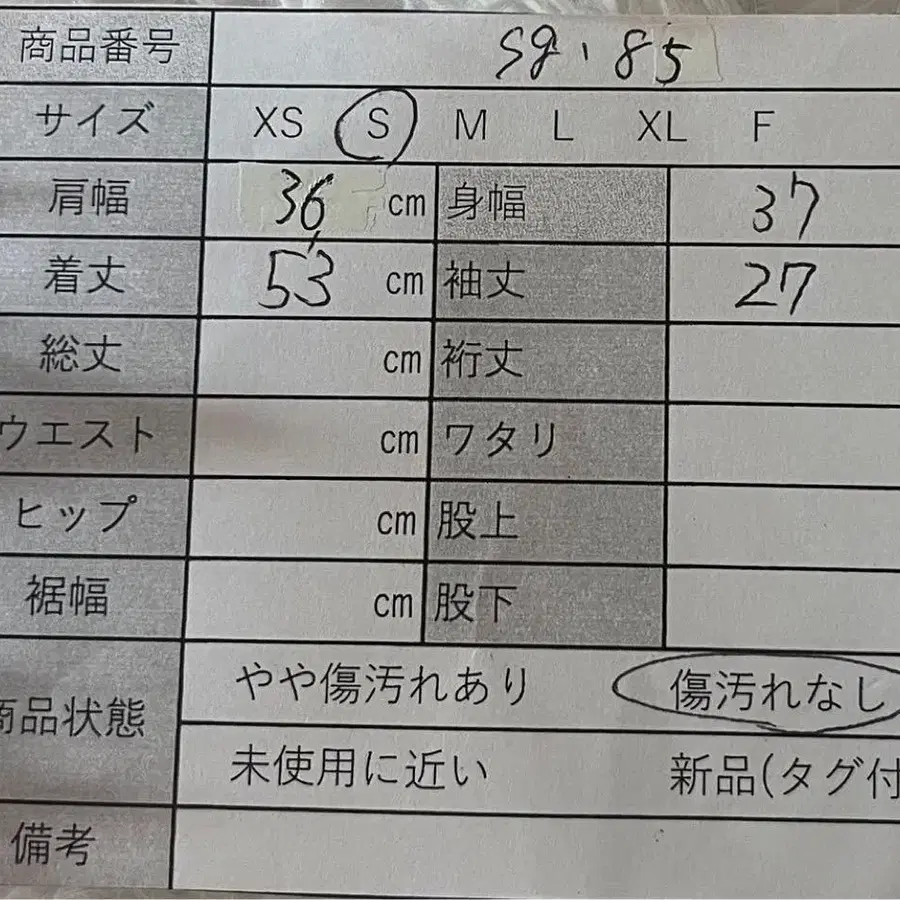 商品番号 sg.85
サイズ XS S M L XL F
肩幅 36 cm 身幅 37
着丈 53 cm 袖丈 27
総丈 cm 裄丈
ウエスト cm ワタリ
ヒップ cm 股上
裾幅 cm 股下
商品状態 やや傷汚れあり 傷汚れなし
未使用に近い 新品(タグ付
備考